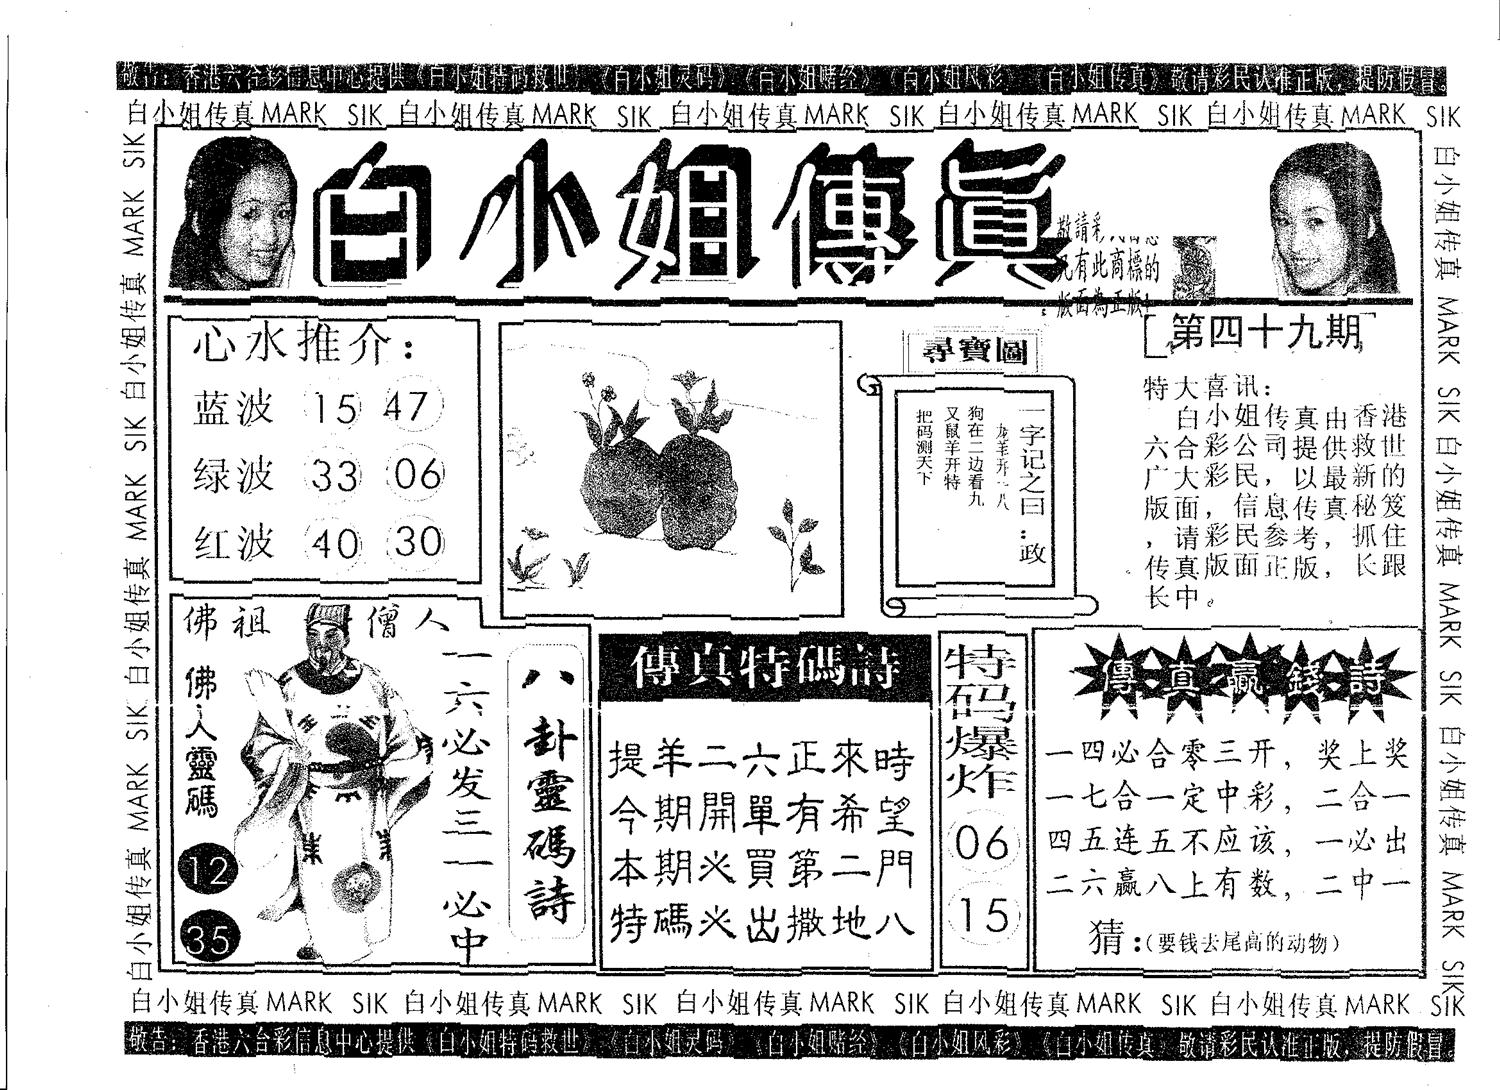 敬告：香港六合彩信息中心提供《白小姐特码救世》《白小姐灵码》《白小姐赌经》《白小姐风彩》《白小姐传真》敬请彩民认准正版，提防假冒。
白小姐传真 MARK SIK 白小姐传真 MARK SIK 白小姐传真 MARK SIK 白小姐传真 MARK SIK 白小姐传真 MARK SIK
白小姐传真 MARK SIK 白小姐传真 MARK SIK 白小姐传真 MARK SIK
白小姐傳眞
敬請彩
有此商標的
版面為正版
白小姐传真 MARK SIK 白小姐传真 MARK SIK 白小姐传真 MARK SIK
心水推介：
蓝波 15 47
绿波 33 06
红波 40 30
尋寶圖
一字记之曰：政
龙羊开二八
狗在二边看九
又鼠羊开特
把码测天下
第四十九期
特大喜讯：
白小姐传真由香港
六合彩公司提供救世
广大彩民，以最新的
版面，信息传真秘笈
，请彩民参考，抓住
传真版面正版，长跟
长中。
佛祖 僧人
佛人靈碼
12
35
一六必发三一必中
八卦靈碼詩
傳真特碼詩
提羊二六正來時
今期開單有希望
本期必買第二門
特碼必出撒地八
特码爆炸
06
15
傳真贏錢詩
一四必合零三开，奖上奖
一七合一定中彩，二合一
四五连五不应该，一必出
二六赢八上有数，二中一
猜：（要钱去尾高的动物）
白小姐传真 MARK SIK 白小姐传真 MARK SIK 白小姐传真 MARK SIK 白小姐传真 MARK SIK 白小姐传真 MARK SIK
敬告：香港六合彩信息中心提供《白小姐特码救世》《白小姐灵码》《白小姐赌经》《白小姐风彩》《白小姐传真》敬请彩民认准正版，提防假冒。